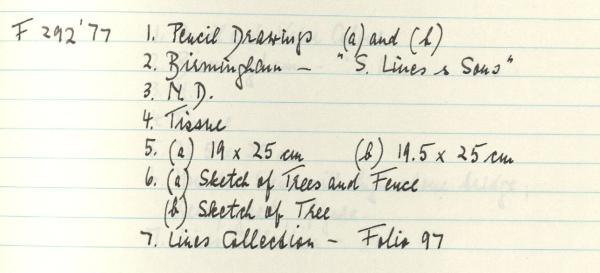 F 292'77 1. Pencil Drawings (a) and (b)
2. Birmingham – "S. Lines & Sons"
3. N.D.
4. Tissue
5. (a) 19 x 25 cm (b) 19.5 x 25 cm
6. (a) Sketch of Trees and Fence
(b) Sketch of Tree
7. Lines Collection – Folio 97